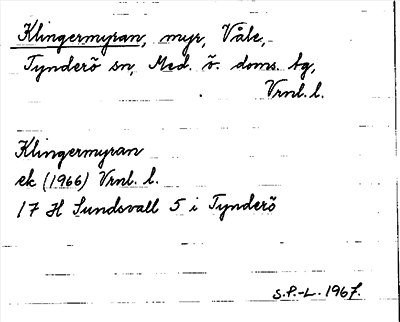 Klingermyran, myr, Våle,
Tynderö sn, Med. ö. doms. bg,
Vrnl. l.
Klingermyran
ek (1966) Vrnl. l.
17 H Sundsvall 5 i Tynderö
S.P.-L. 1967.